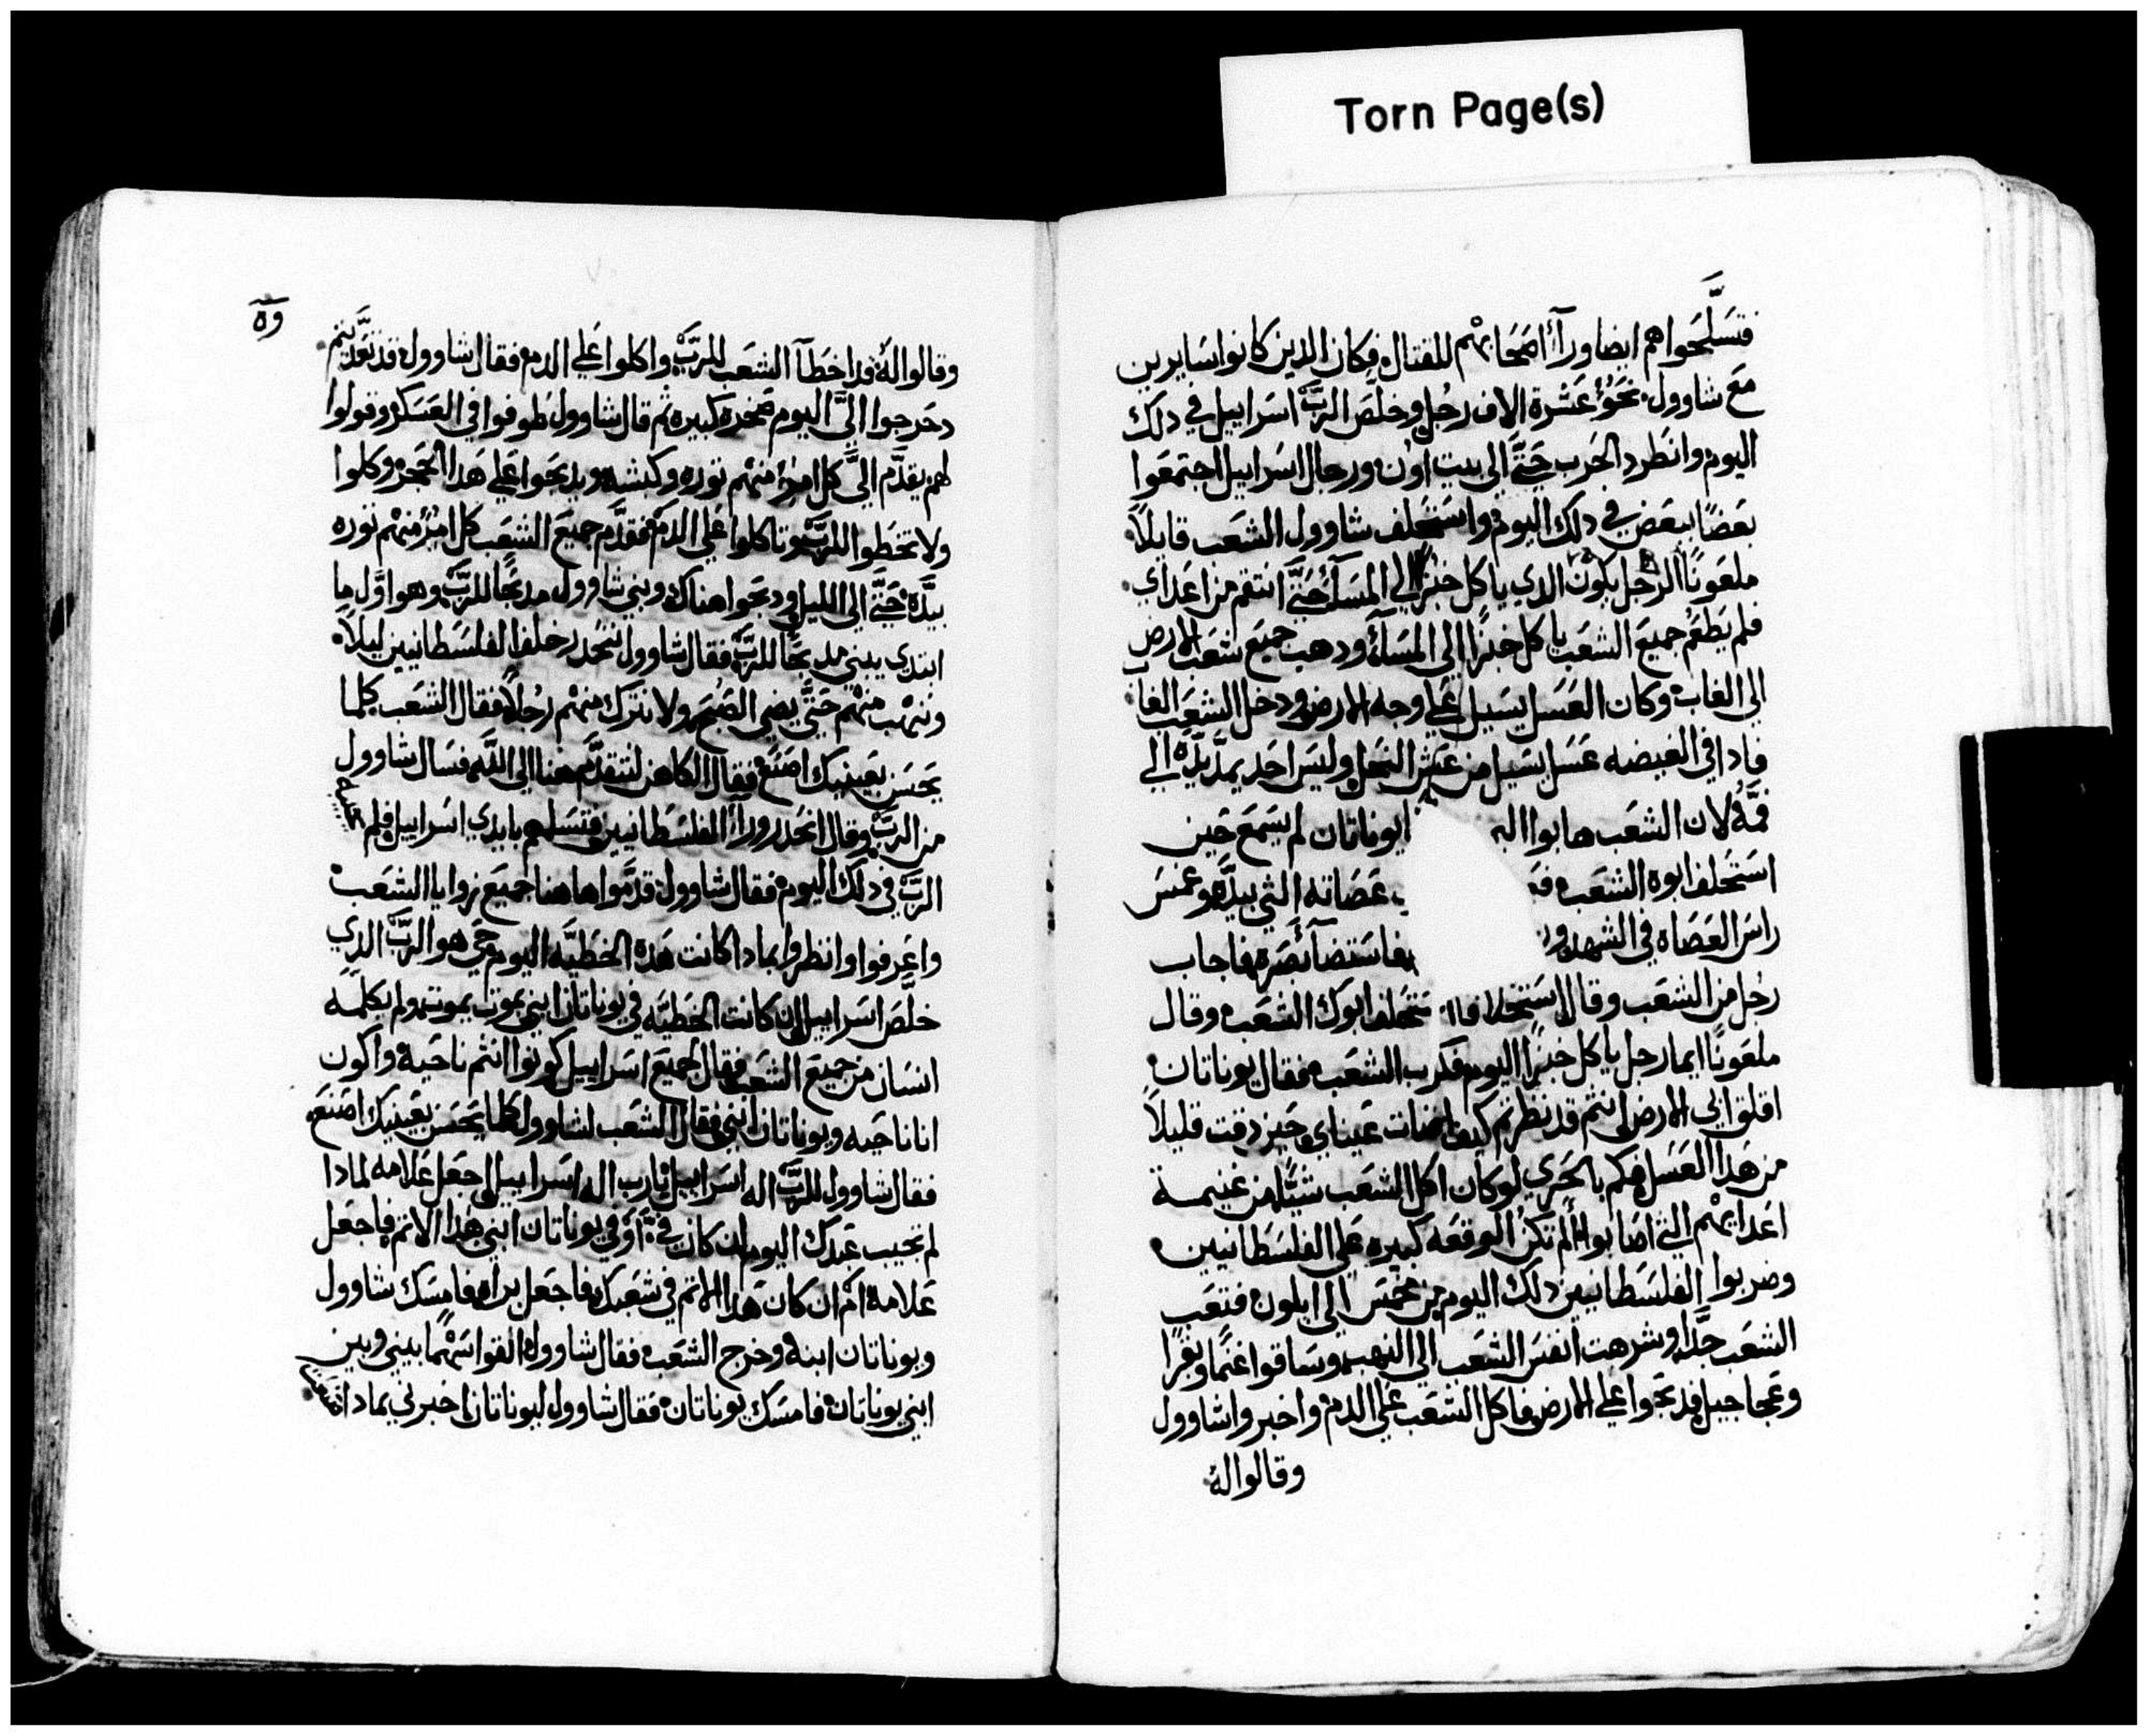 Torn Page(s)
فتسلَّحوا هم ايضا ورآء اصحابهم للقتال فكان الدين كانوا سايرين
مع شاوول نحو عشرة الاف رجل وخلص الربّ اسراييل في دلك
اليوم وانطرد الحرب حتَّى الى بيت اون ورجال اسراييل اجتمعوا
بعضًا ببعض في دلك اليوم واستحلف شاوول الشعب قايلاً
ملعونًا الرجل يكون الدي ياكل خبزًا الى المسآء حتَّى انتقم من اعداي
فلم يطعم جميع الشعب ياكل خبزًا الى المسآء ودهب جميع شعب الارض
الى الغاب وكان العسل يسيل على وجه الارض ودخل الشعب الغاب
فادا في الغيضه عسل يسيل من عش النحل وليس احد يمدّ يدّه الى
فمّه لان الشعب هابوا ال ايوناتان لم يسمع حين
استحلف ابوه الشعب فم عصاته التي بيدّه وغمس
راس العصاه في الشهد ور فاستضآء بصره فاجاب
رجل من الشعب وقال استحلافا ستحلف ابوك الشعب وقال
ملعونًا ايما رجل ياكل خبزًا اليوم فكرب الشعب فقال يوناتان
اقلق ابي الارض انتم قد نظرتم كيف اضات عيناي حين دقت قليلاً
من هدا العسل فكم بالحري لو كان اكل الشعب شيًّا من غنيمة
اعدايهم التي اصابوا الم تكن الوقعه كبيره على الفلسطانيين
وضربوا الفلسطانيين دلك اليوم من مخمس الى ايلون فتعب
الشعب جدًّا وشرهت انفس الشعب الى النهب وساقوا غنمًا وبقرًا
وعجاجيل فدبحوا على الارض فاكل الشعب على الدم واخبروا شاوول
وقالوا له
٥٩
وقالوا له قد اخطآ الشعب للربّ واكلوا على الدم فقال شاوول قد تعدّيتم
دحرجوا اليَّ اليوم صخره كبيره ثم قال شاوول طوفوا في العسكر وقولوا
لهم يقدَّم اليَّ كل امرٍ منهم توره وكبشه ويدبحوا على هدا الحجر وكلوا
ولا تخطوا للربّ وتاكلوا على الدم فقدَّم جميع الشعب كل امرٍ منهم توره
بيدّه حتَّى الى الليل ودبحوا هناك وبني شاوول مدبحًا للربّ وهو اوّل ما
ابتدى يبني مدبحًا للربّ فقال شاوول ننحدر خلف الفلسطانيين ليلاً
وننهب منهم حتَّى يضي الصبح ولا نترك منهم رجلاً فقال الشعب كلما
يحسن بعينيك اصنع فقال الكاهن لنتقدَّم هنا الى اللّه فسال شاوول
من الربّ وقال انحدر ورآء الفلسطانيين فتسلمهم بايدي اسراييل فلم يجيبه
الربّ في دلك اليوم فقال شاوول قدّموا هاهنا جميع زوايا الشعب
واعرفوا وانظروا بمادا كانت هده الخطيَّه اليوم حي هو الربّ الدي
خلَّص اسراييل ان كانت الخطيَّه في يوناتان ابني يموت يموت ولم يكلمه
انسان من جميع الشعب فقال لجميع اسراييل كونوا انتم ناحيه واكون
انا ناحيه ويوناتان ابني فقال الشعب لشاوول كلما يحسن بعينيك اصنع
فقال شاوول للربّ اله اسراييل يارب اله اسراييل اجعل علامه لمادا
لم تجيب عبدك اليوم ان كان فيَّ او في يوناتان ابني هدا الاتم فاجعل
علامه ام ان كان هدا الاتم في شعبك فاجعل براه فامسك شاوول
ويوناتان ابنه وخرج الشعب فقال شاوول القوا سهمًا بيني وبين
ابني يوناتان فامسك يوناتان فقال شاوول ليوناتان اخبرني بمادا